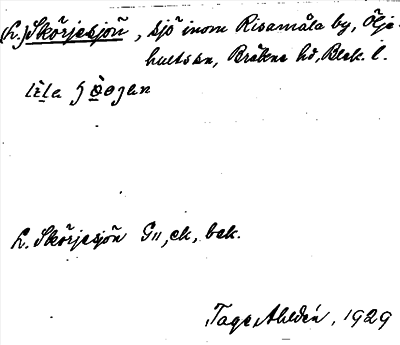 (L.) Skörjesjön, sjö inom Risamåla by, Ölje-
hults sn, Bräkne hd, Blek. l.
lìla
L. Skörjesjön G11, ek, bek.
Tage Ahldén, 1929